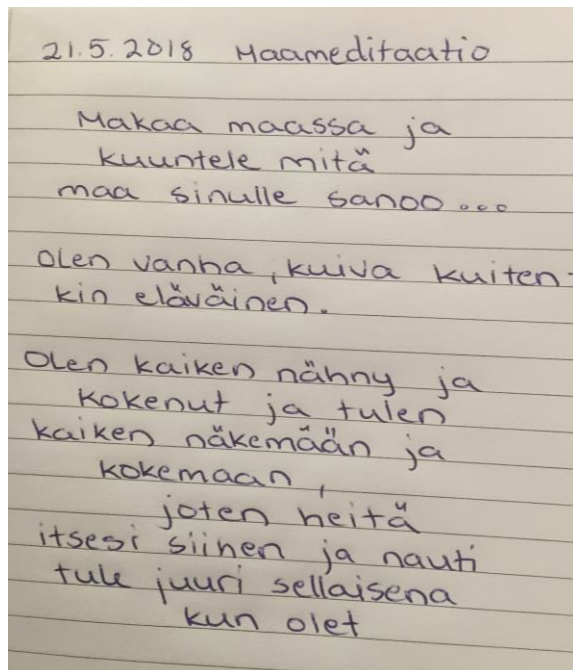 21.5.2018 Maameditaatio
Makaa maassa ja
kuuntele mitä
maa sinulle sanoo...
Olen vanha, kuiva kuiten-
kin eläväinen.
Olen kaiken nähny ja
kokenut ja tulen
kaiken näkemään ja
kokemaan,
joten heitä
itsesi siihen ja nauti
tule juuri sellaisena
kun olet